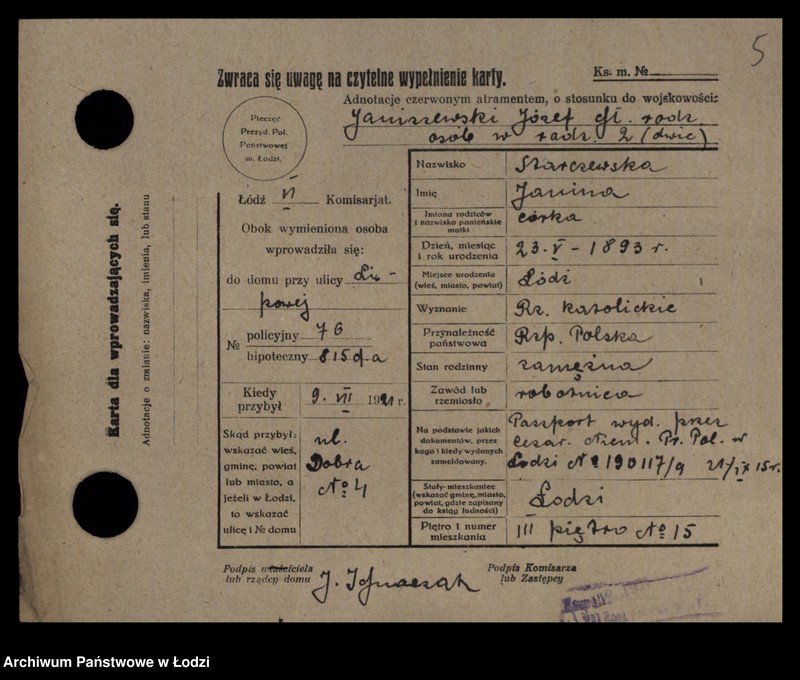 5
Zwraca się uwagę na czytelne wypełnienie karty.
Ks. m. №
Adnotacje czerwonym atramentem, o stosunku do wojskowości:
Janiszewski Józef gł. rodz.
osób w rodz. 2 (dwie)
Pieczęć
Prezyd. Pol.
Państwowej
m. Łodzi.
Łódź VI Komisarjat.
Obok wymieniona osoba
wprowadziła się:
do domu przy ulicy Li-
powej
№ policyjny 76
hipoteczny 815
Kiedy przybył 9. VII 1921 r.
Skąd przybył:
wskazać wieś,
gminę, powiat
lub miasto, a
jeżeli w Łodzi,
to wskazać
ulicę i № domu
ul.
Dobra
№ 4
Nazwisko Starczewska
Imię Janina
Imiona rodziców
i nazwisko panieńskie
matki
córka
Dzień, miesiąc
i rok urodzenia
23. V - 1893 r.
Miejsce urodzenia
(wieś, miasto, powiat)
Łódź
Wyznanie Rz. katolickie
Przynależność
państwowa
Rzp. Polska
Stan rodzinny zamężna
Zawód lub
rzemiosło
robotnica
Na podstawie jakich
dokumentów, przez
kogo i kiedy wydanych
zameldowany.
Passport wyd. przez
Cesar. Niem. Pr. Pol. w
Łodzi № 190117/9 21/IX 15 r.
Stały-mieszkaniec
(wskazać gminę, miasto,
powiat, gdzie zapisany
do ksiąg ludności)
Łodzi
Piętro i numer
mieszkania
III piętro № 15
Podpis właściciela
lub rządcy domu
J. Ignaczak
Podpis Komisarza
lub Zastępcy
Karta dla wprowadzających się.
Adnotacje o zmianie: nazwiska, imienia, lub stanu
Archiwum Państwowe w Łodzi